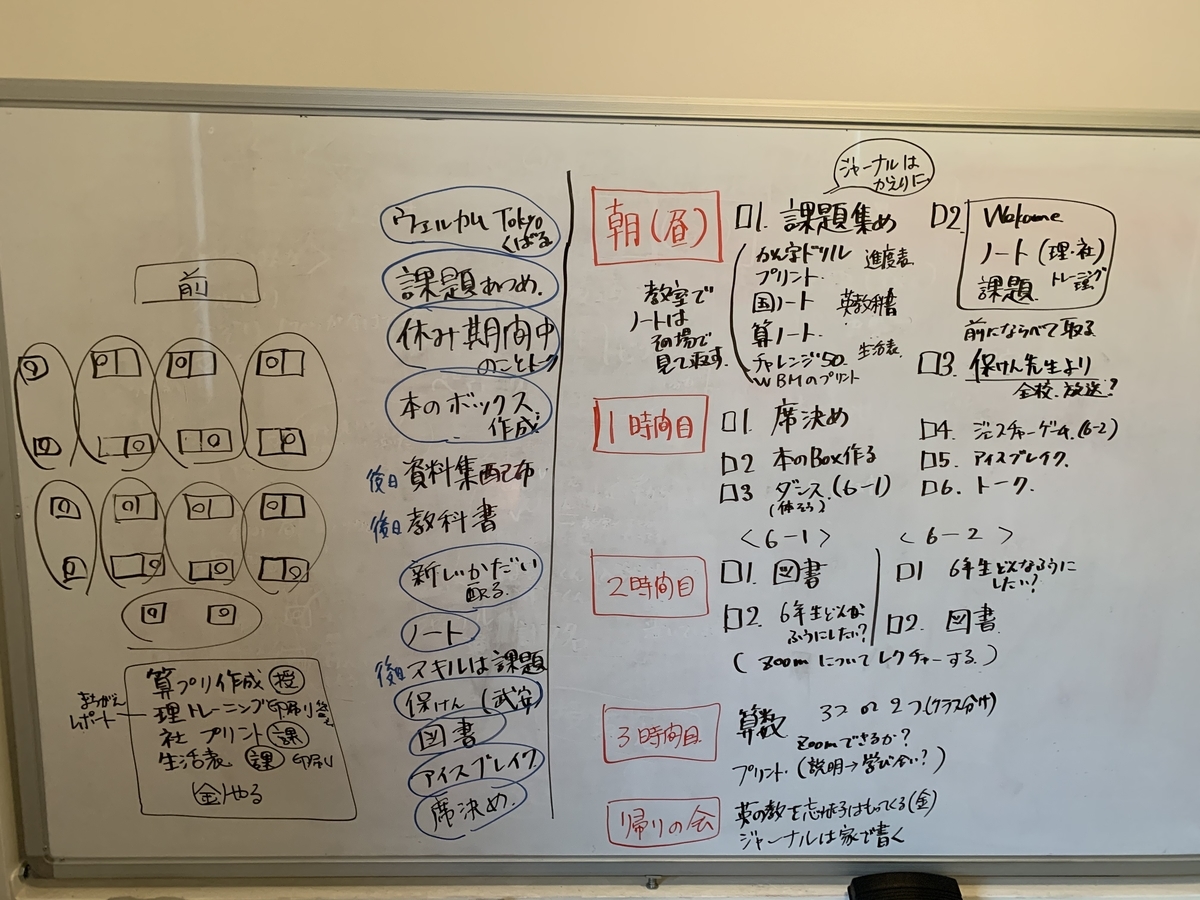 前
算プリ作成 授
理トレーニング 印刷り
社 プリント 課
生活表 課 印刷り
金 やる
まちがえ
レポート
ウェルカム Tokyo
くばる
課題あつめ.
休み期間中
のことトーク
本のボックス
作成
後日 資料集配布
後日 教科書
新しいかだい
配る.
ノート
後日 アキルは課題
保けん (武安)
図書
アイスブレイク
席決め.
朝(昼)
教室で
ノートは
その場で
見て返す.
ジャーナルは
かえりに
□1. 課題集め
かん字ドリル 進度表
プリント.
国ノート 英教科書
算ノート.
チャレンジ50. 生活表.
WBMのプリント
□2. Welcome
ノート (理・社)
課題. トレーニング
前にならべて取る
□3. 保けん先生より
全校.放送?
1時間目
□1. 席決め
□2 本のBox作る
□3 ダンス.(6-1)
□4. ジェスチャーゲーム.(6-2)
□5. アイスブレイク.
□6. トーク.
2時間目
<6-1>
□1. 図書
□2. 6年生どんな
ふうにしたい?
<6-2>
□1 6年生どんなふうに
したい?
□2. 図書
(Zoomについてレクチャーする.)
3時間目
算数 3つ or 2つ(クラス分け)
Zoomできるか?
プリント.(説明→学び合い?)
帰りの会
ジャーナルは家で書く